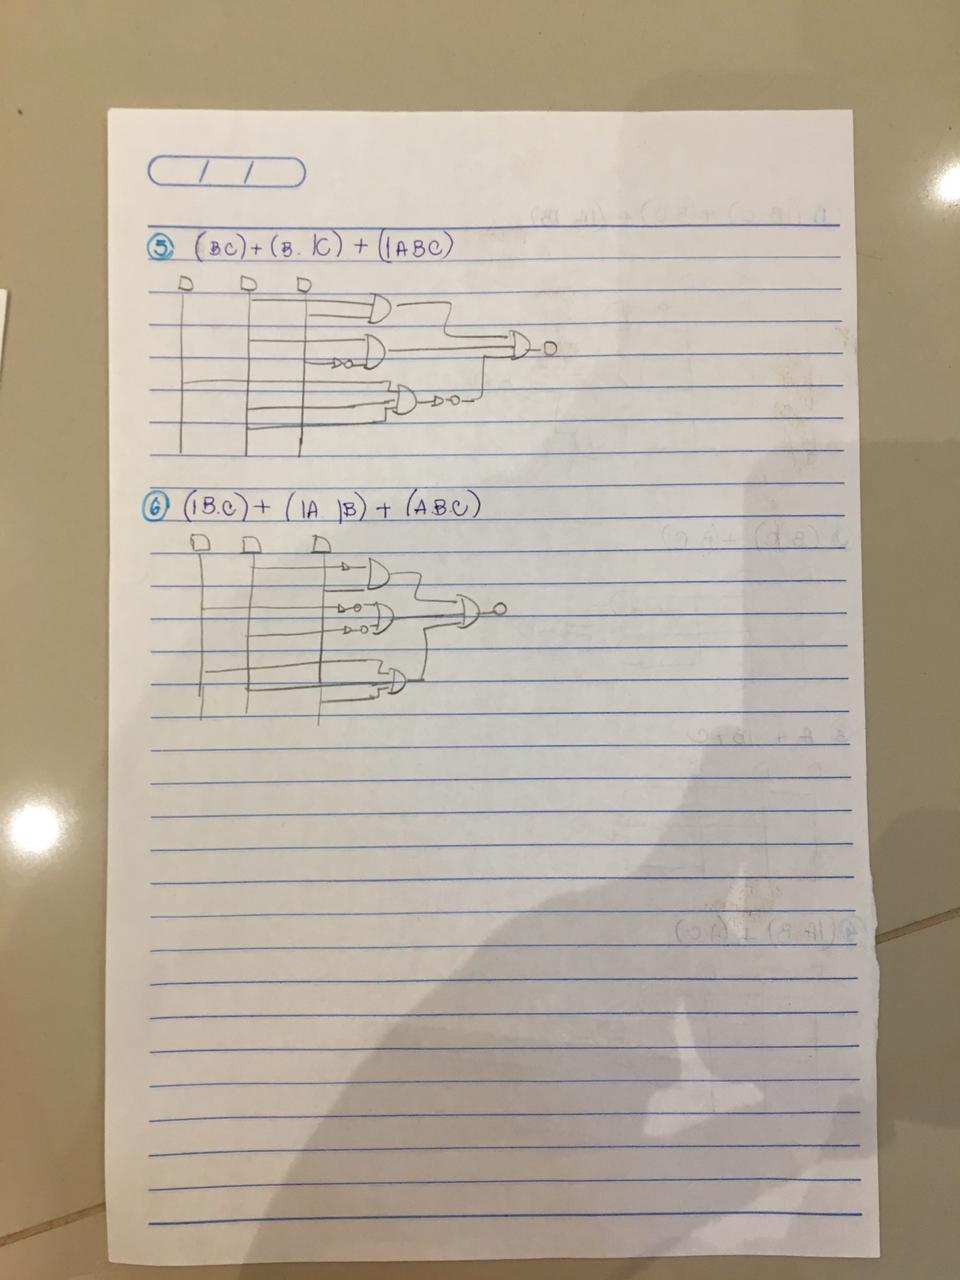 / /
5 (BC)+(B. |C) + (|ABC)
6 (|B.C) + (|A |B) + (A B.C)